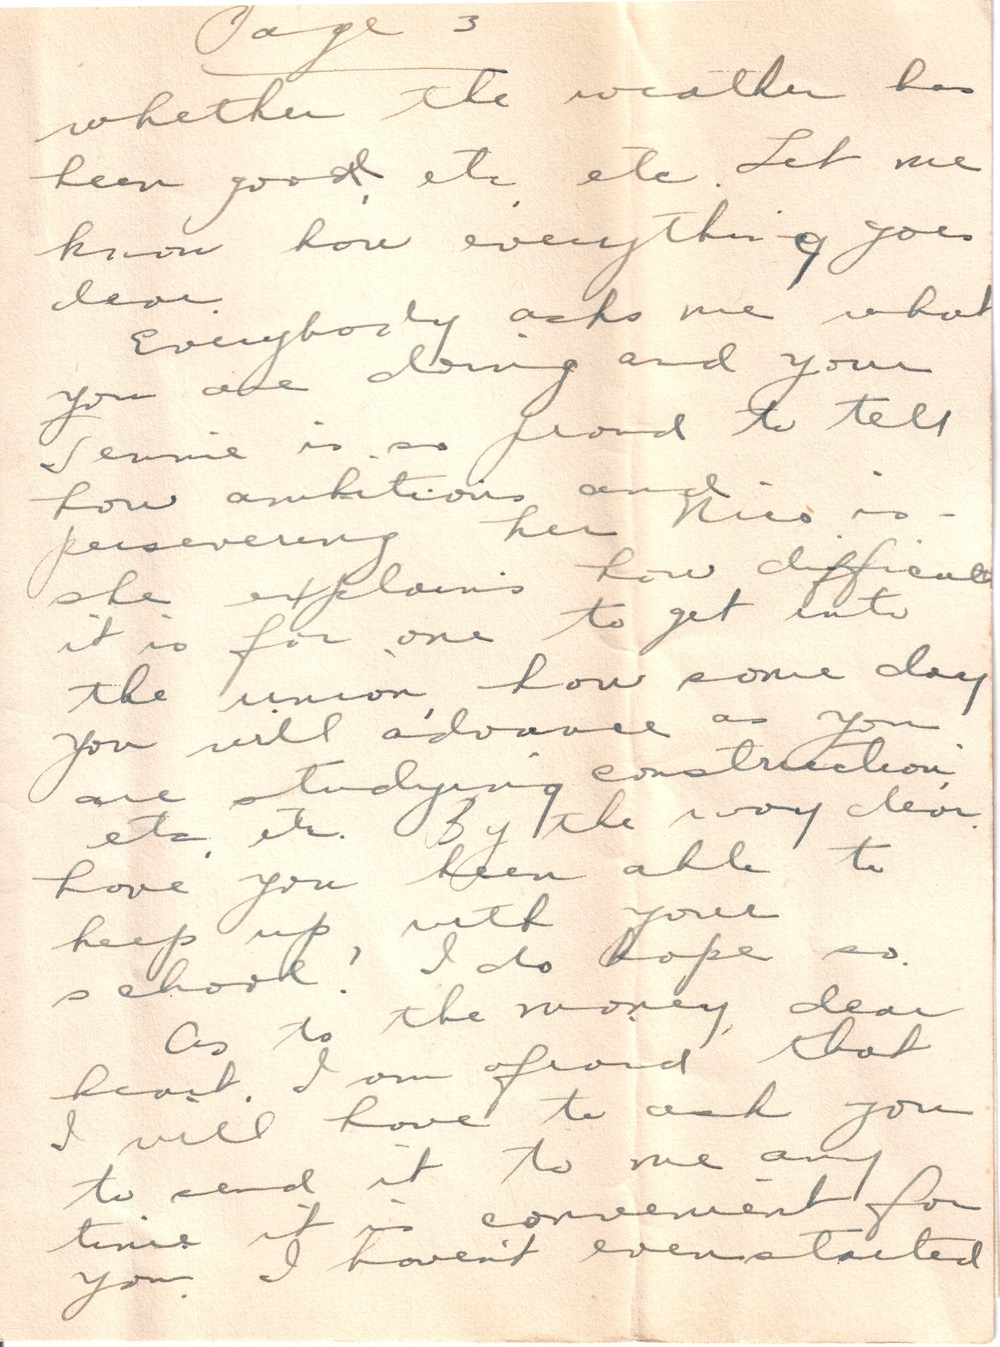 Page 3
whether the weather has
been good, etc, etc. Let me
know how everything goes
dear.
Everybody asks me what
you are doing and your
Jennie is so proud to tell
how ambitious and
persevering her Nico is -
she explains how difficult
it is for one to get into
the union, how some day
you will advance as you
are studying construction,
etc, etc. By the way dear
have you been able to
keep up, with your
school? I do hope so.
As to the money, dear
heart, I am afraid that
I will have to ask you
to send it to me any
time it is convenient for
you. I haven't even started